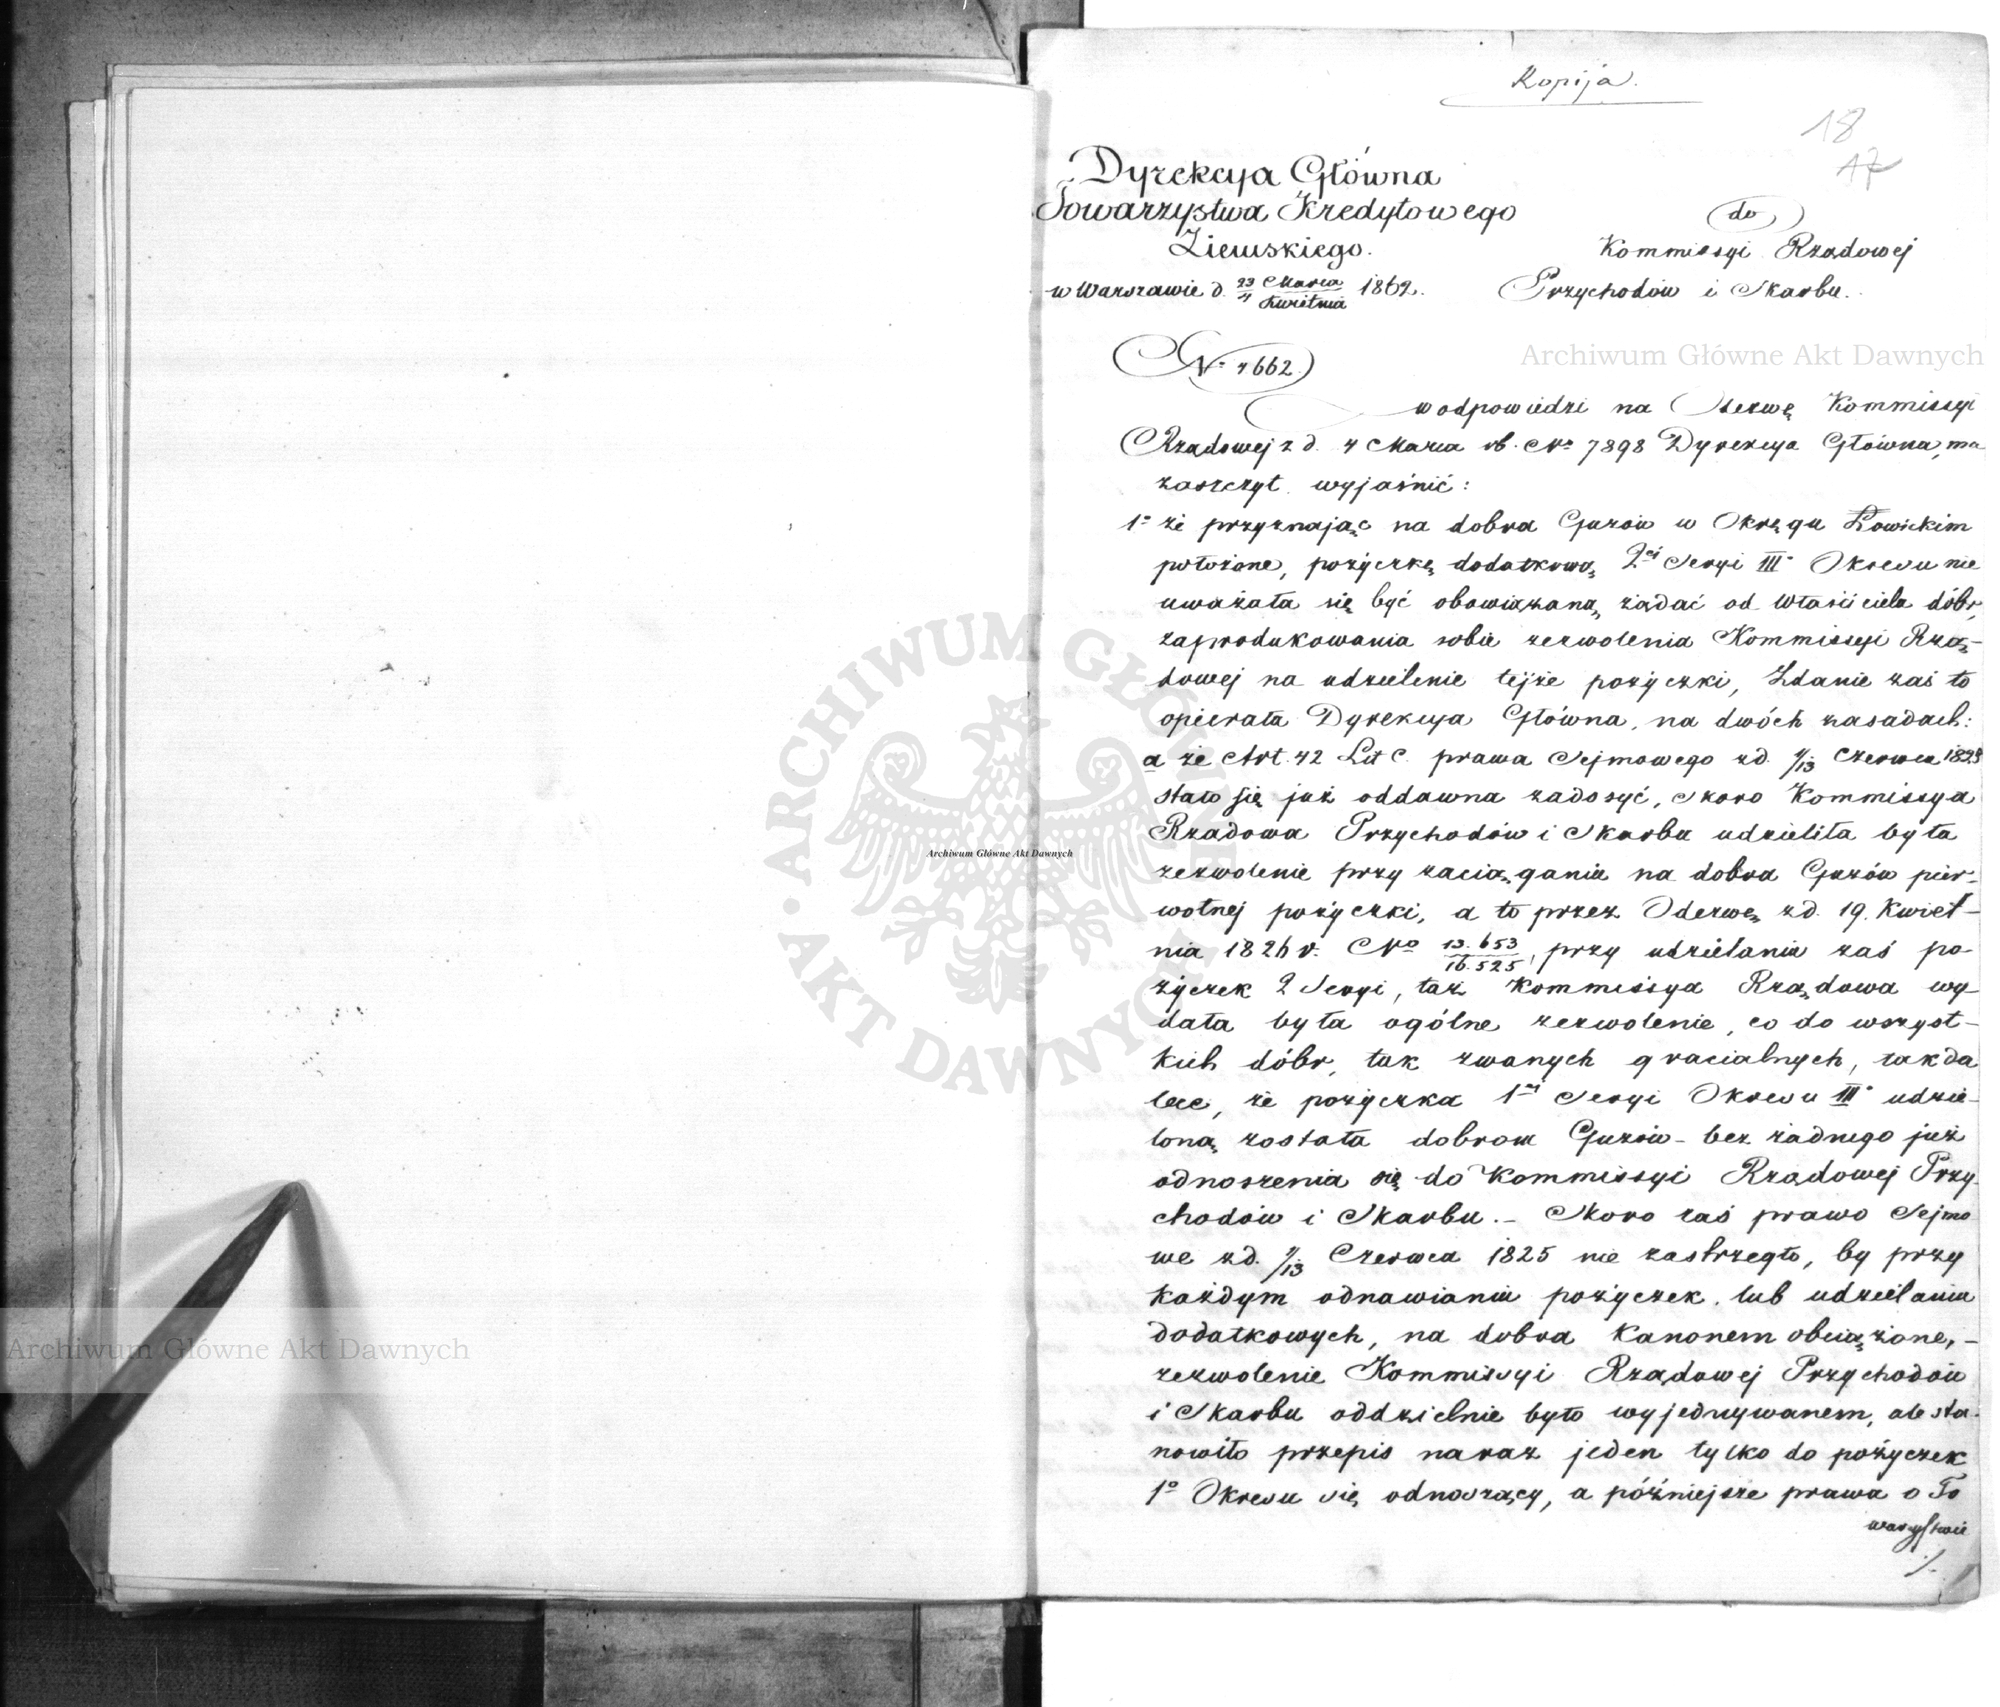 Kopija.
18
17
Dyrekcya Główna
Towarzystwa Kredytowego
Ziemskiego.
w Warszawie d. 23 Marca / 4 Kwietnia 1862.
do
Kommissyi Rządowej
Przychodów i Skarbu.
No 4662.
w odpowiedzi na Odezwę Kommissyi
Rządowej z d. 4 Marca rb. No 7898 Dyrekcya Główna, ma
zaszczyt wyjaśnić:
1o że przyznając na dobra Guzów w Okręgu Łowickim
położone, pożyczkę dodatkową 2ej Seryi III Okresu nie
uważała się być obowiązaną żądać od Właściciela dóbr,
zaprodukowania sobie zezwolenia Kommissyi Rzą-
dowej na udzielenie tejże pożyczki, Zdanie zaś to
opierała Dyrekcya Główna, na dwóch zasadach:
a że Art. 42 Lit C. prawa Sejmowego z d. 1/13 Czerwca 1825
stało się już oddawna zadosyć, skoro Kommissya
Rządowa Przychodów i Skarbu udzieliła była
zezwolenie przy zaciąganiu na dobra Guzów pier-
wotnej pożyczki, a to przez Odezwę z d. 19. Kwiet-
nia 1826 r. No 13.653/16.525, przy udzielaniu zaś po-
życzek 2 Seryi, taż Kommissya Rządowa wy-
dała była ogólne zezwolenie, co do wszyst-
kich dóbr, tak zwanych gracialnych, tak da
lece, że pożyczka 1ej Seryi Okresu III udzie-
loną została dobrom Guzów - bez żadnego już
odnoszenia się do Kommissyi Rządowej Przy
chodów i Skarbu. - Skoro zaś prawo Sejmo
we z d. 1/13 Czerwca 1825 nie zastrzegło, by przy
każdym odnawianiu pożyczek, lub udzielaniu
dodatkowych, na dobra Kanonem obciążone, -
zezwolenie Kommissyi Rządowej Przychodów
i Skarbu oddzielnie było wyjednywanem, ale sta-
nowiło przepis naraz jeden tylko do pożyczek
1o Okresu się odnoszący, a późniejsze prawa o To
warzystwie
./.
Archiwum Główne Akt Dawnych
Archiwum Główne Akt Dawnych
Archiwum Główne Akt Dawnych
ARCHIWUM GŁÓWNE · AKT DAWNYCH